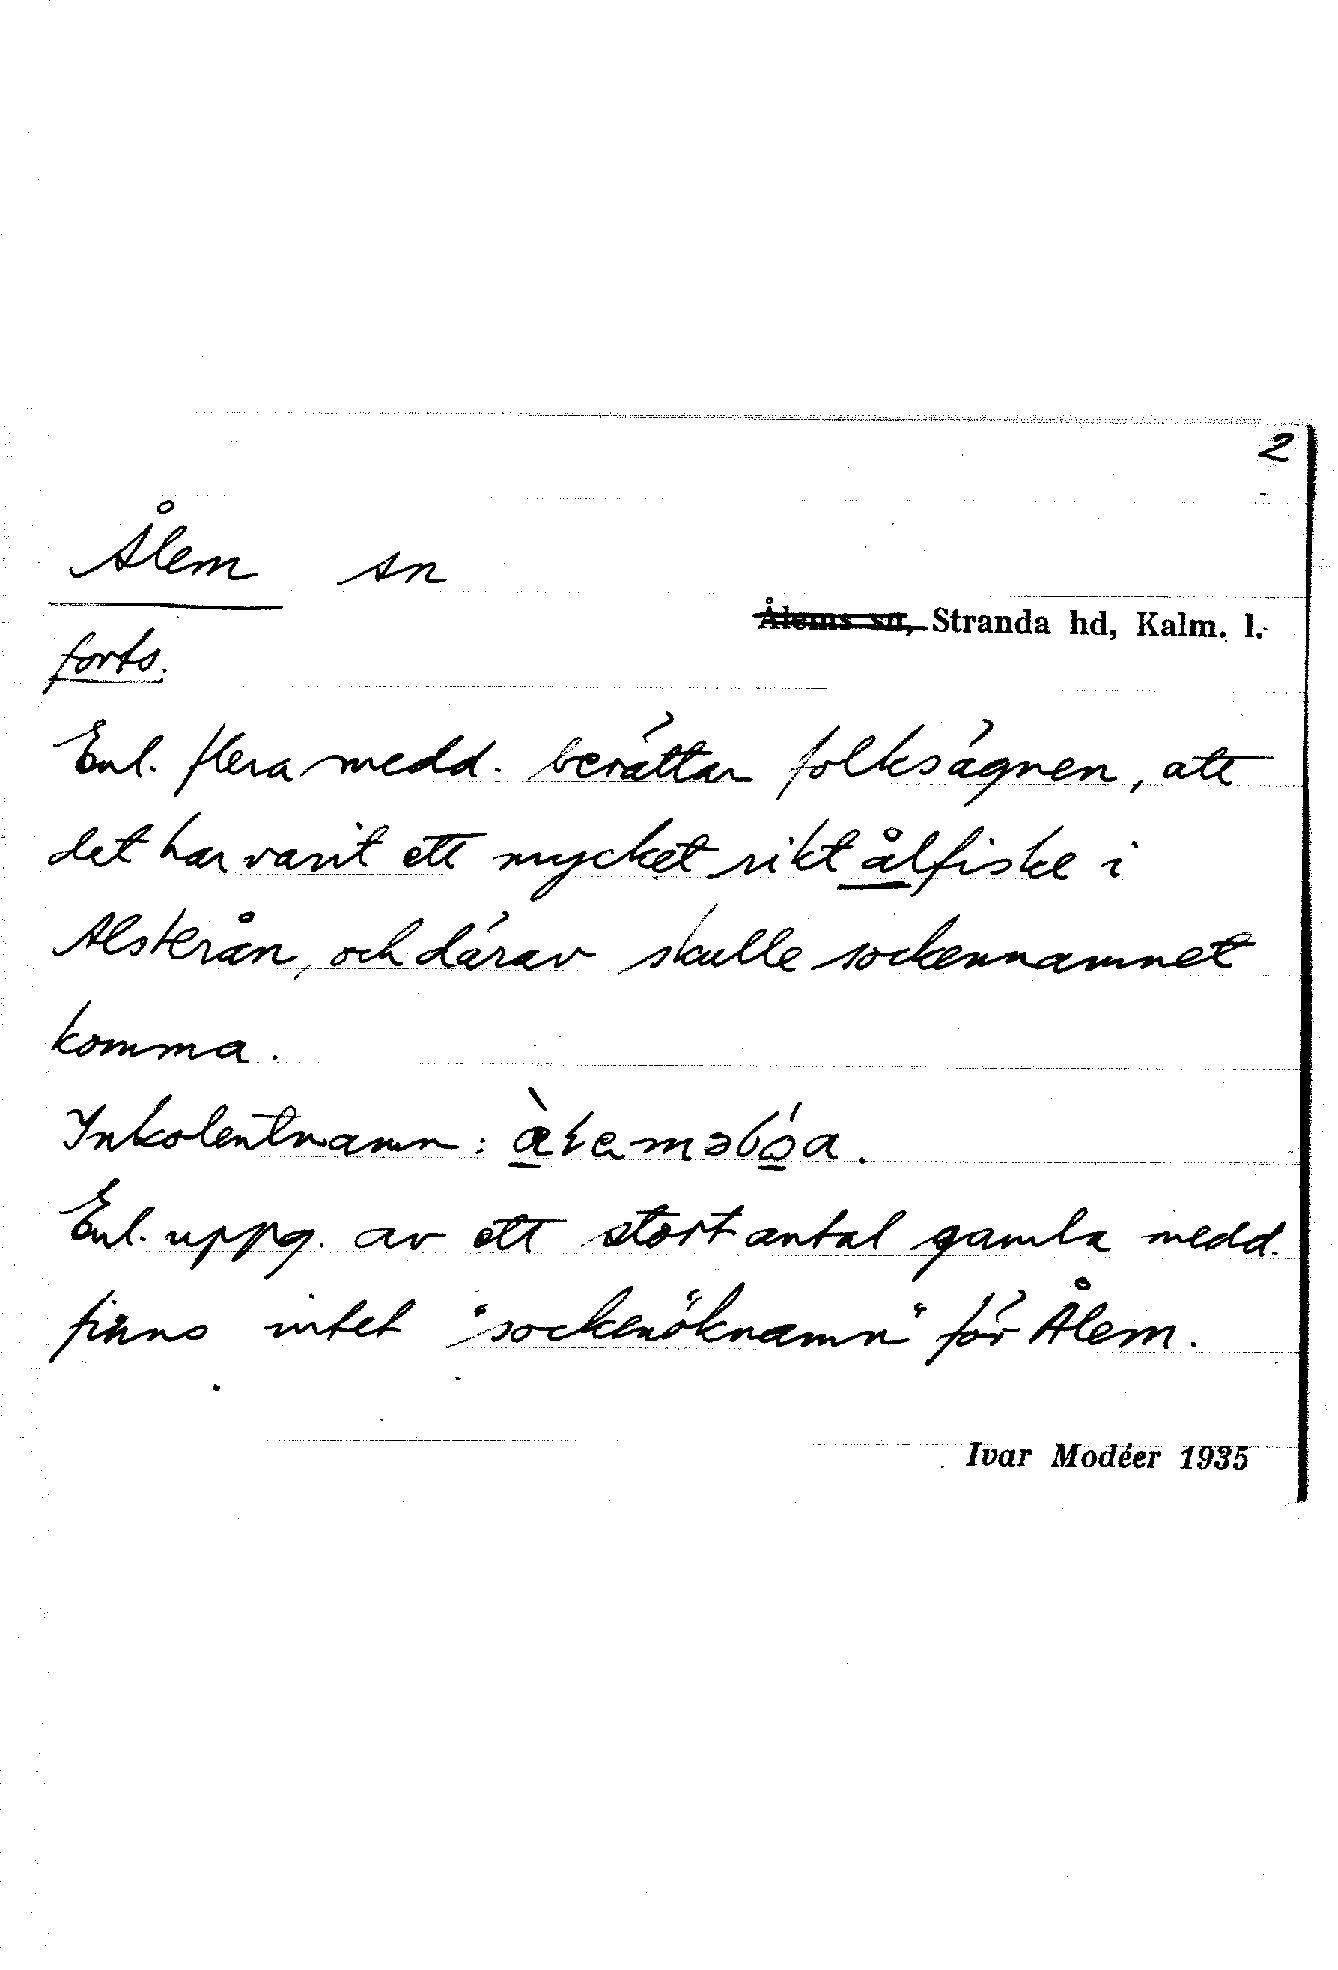 2
Ålem sn
Ålems sn, Stranda hd, Kalm. l.
forts.
Enl. flera medd. berättar folksägnen, att
det har varit ett mycket rikt ålfiske i
Alsterån, och därav skulle sockennamnet
komma.
Inkolentnamn:
Enl. uppg. av ett stort antal gamla medd.
finns intet "sockenöknamn" för Ålem.
Ivar Modéer 1935